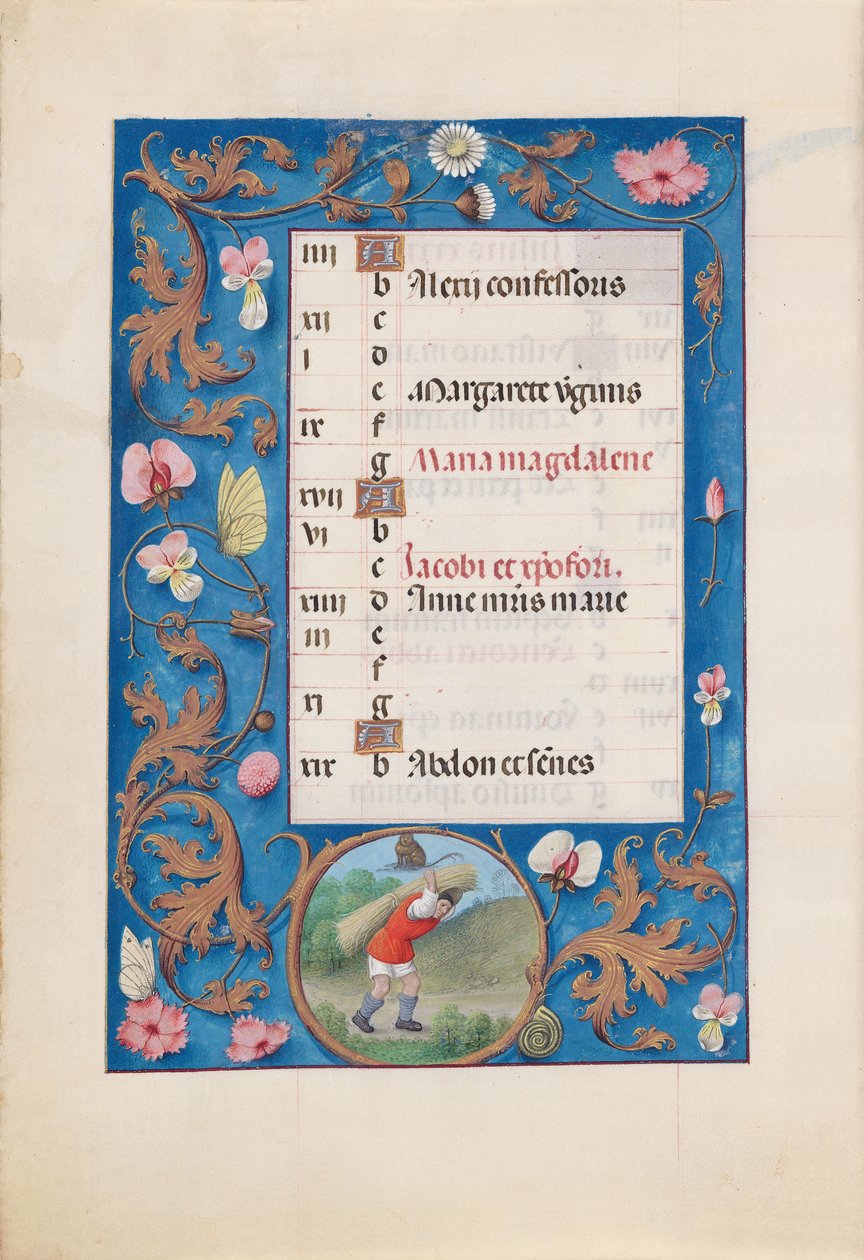 iiii A
b Alexij confessoris
xii c
i d
e Margarete v̄ginis
ix f
g Maria magdalene
xvii A
vi b
c Jacobi et xp̄ofori.
xiiii d Anne mr̄is marie
iii e
f
xi g
A
xix b Abdon et sēnes